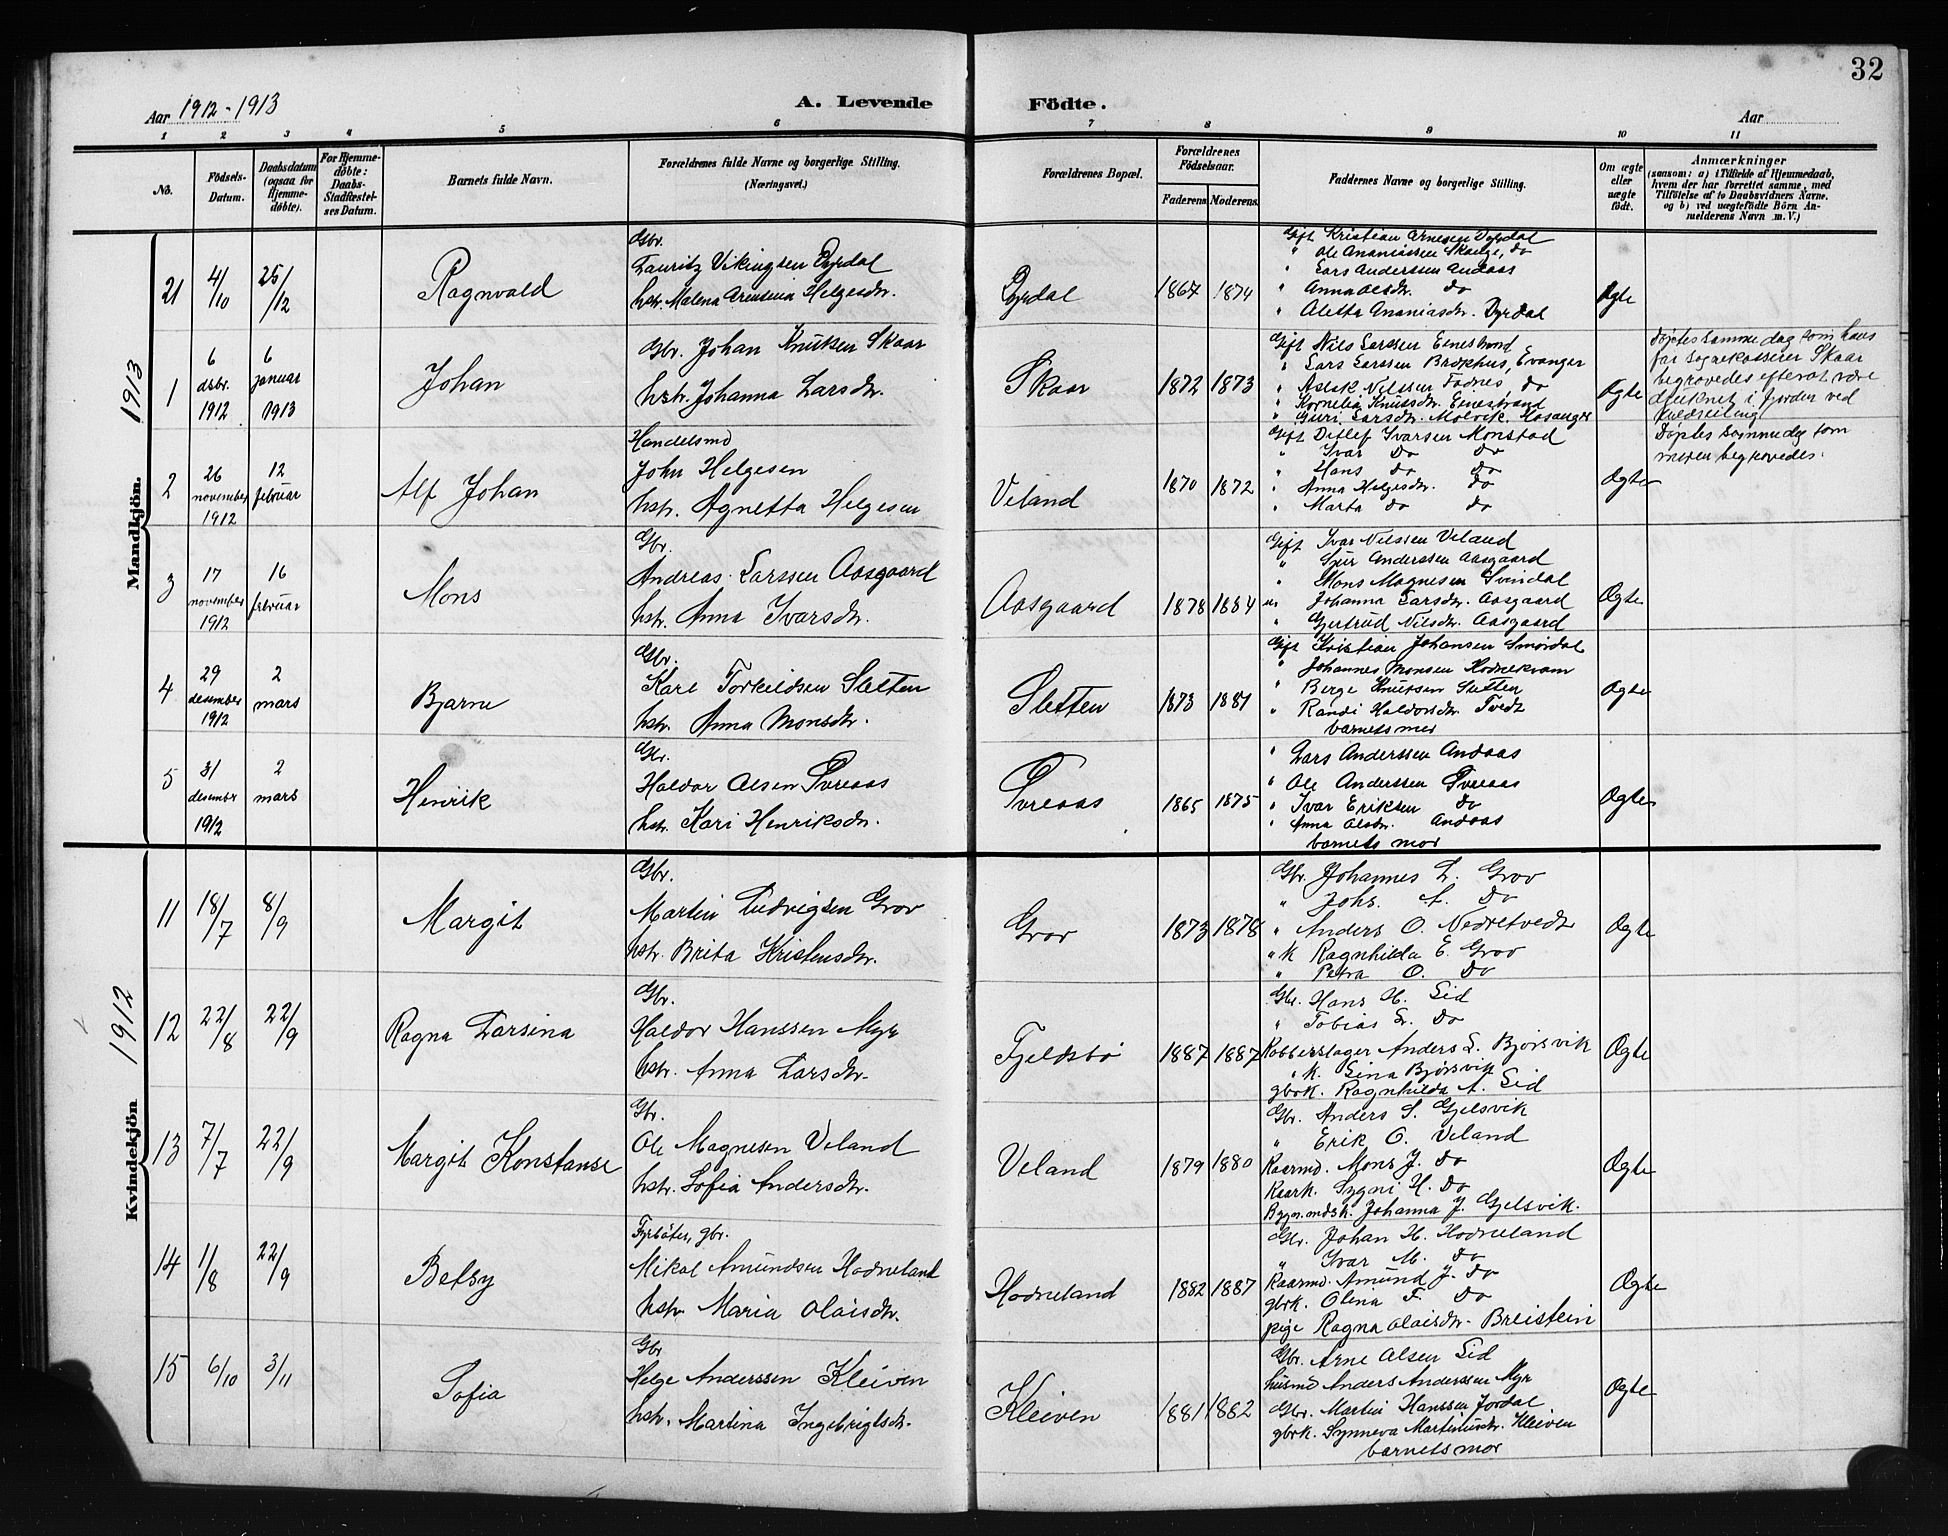 32
Aar 1912-1913
A. Levende Födte.
Aar
1 2 3 4 5 6 7 8 9 10 11
No.
Födsels-Datum.
Daabsdatum (ogsaa for Hjemme-døbte).
For Hjemme-døbte: Daabs-Stadfæstel-ses Datum.
Barnets fulde Navn.
Forældrenes fulde Navne og borgerlige Stilling. (Næringsvei.)
Forældrenes Bopæl.
Forældrenes Födselsaar.
Faderens Moderens.
Faddernes Navne og borgerlige Stilling.
Om ægte eller uægte født.
Anmærkninger
(saasom: a) i Tilfælde af Hjemmedaab, hvem der har forrettet samme, med Tilføielse af to Daabsvidners Navne, og b) ved uægtefødte Børn An-melderens Navn m. V.)
Mandkjön. 1913
21 4/10 25/12 Ragnvald
Gbr.
Lauritz Vikingsen Dyrdal
hstr. Malena Arentsina Helgesdtr.
Dyrdal 1867 1874
Gift Kristian Arnesen Dyrdal
" Ole Ananiassen Skauge, do
" Lars Anderssen Andaas
" Anna Olsdtr. do
" Aletta Ananiasdtr. Dyrdal
Ægte
1 6 dsbr. 1912 6 januar 1913 Johan
Gbr. Johan Knutsen Skaar
hstr. Johanna Larsdtr.
Skaar 1872 1873
Gift Nils Larssen Einestrand
" Lars Larssen Brækhus, Evanger
" Aslak Nilssen Fadnes do
" Kornelia Knutsdtr. Einestrand
" Guri Larsdtr. Molvik. Hosanger
Ægte
Døptes samme dag som hans
far sognekasserer Skaar
begrovedes efterat være
druknet i fjorden ved
kuldseiling
2 26 november 1912 12 februar Alf Johan
Handelsmd
John Helgesen
hstr. Agnetta Helgesen
Veland 1870 1872
Gift Ditlef Ivarsen Monstad
" Ivar do do
" Hans do do
" Anna Helgesdtr. do
" Marta do do
Ægte
Døptes samme dag som
moren begrovedes.
3 17 november 1912 16 februar Mons
Gbr.
Andreas Larssen Aasgaard
hstr. Anna Ivarsdtr.
Aasgaard 1878 1884
Gift Ivar Nilssen Veland
" Sjur Anderssen Aasgaard
" Mons Magnesen Svindal
" Johanna Larsdtr. Aasgaard
" Gjertrud Nilsdtr. Aasgaard
Ægte
4 29 desember 1912 2 mars Bjarne
Gbr.
Karl Torkildsen Sletten
hstr. Anna Monsdtr.
Sletten 1873 1881
Gift Kristian Johansen Smørdal
" Johannes Monsen Hodnekvam
" Berge Knutsen Sletten
" Randi Haldorsdtr. Tvedt
barnets mor
Ægte
5 31 desember 1912 2 mars Henrik
Gbr.
Haldor Olsen Tvreaas
hstr. Kari Henriksdtr.
Tvreaas 1865 1875
" Lars Anderssen Andaas
" Ole Anderssen Tvreaas
" Ivar Eriksen do
" Anna Olsdtr. Andaas
barnets mor
Ægte
Kvindekjön 1912
11 18/7 8/9 Margit
Gbr.
Martin Ludvigsen Grov
hstr. Brita Kristensdtr.
Grov 1873 1878
Gbr. Johannes L. Grov
" Johs. A. Do
" Anders O. Nedretvedt
" k Ragnhilda E. Grov
" Petra O. Do
Ægte
12 22/8 22/9 Ragna Larsina
Gbr.
Haldor Hanssen Myr
hstr. Anna Larsdtr.
Fjeldsbø 1887 1887
Gbr. Hans H. Eid
" Tobias L. Do
Kobberslager Anders L. Bjørsvik
" k. Lina Bjørsvik
gbrk. Ragnhilda A. Eid
Ægte
13 7/7 22/9 Margit Konstanse
Gbr.
Ole Magnesen Veland
hstr. Sofia Andersdtr.
Veland 1879 1880
Gbr. Anders S. Gjelsvik
" Erik O. Veland
Kaarmd. Mons J. Do
Kaark. Sygni H. Do
Bygn.mdsk. Johanna J. Gjelsvik.
Ægte
14 11/8 22/9 Betsy
Fyrbøter, gbr.
Mikal Amundsen Hodneland
hstr. Maria Olaisdtr.
Hodneland 1882 1887
Gbr. Johan H. Hodneland
" Ivar M. Do
Kaarmd. Amund J. Do
gbrk. Olina F. Do
pige Ragna Olaisdtr. Breistein
Ægte
15 6/10 3/11 Sofia
Gbr
Helge Anderssen Kleiven
hstr. Martina Ingebrigtsdtr.
Kleiven 1881 1882
Gbr. Arne Olsen Eid
husmd Anders Anderssen Myr
Gbr. Martin Hanssen Jordal
gbrk. Synneva Martinusdtr. Kleiven
barnets mor
Ægte